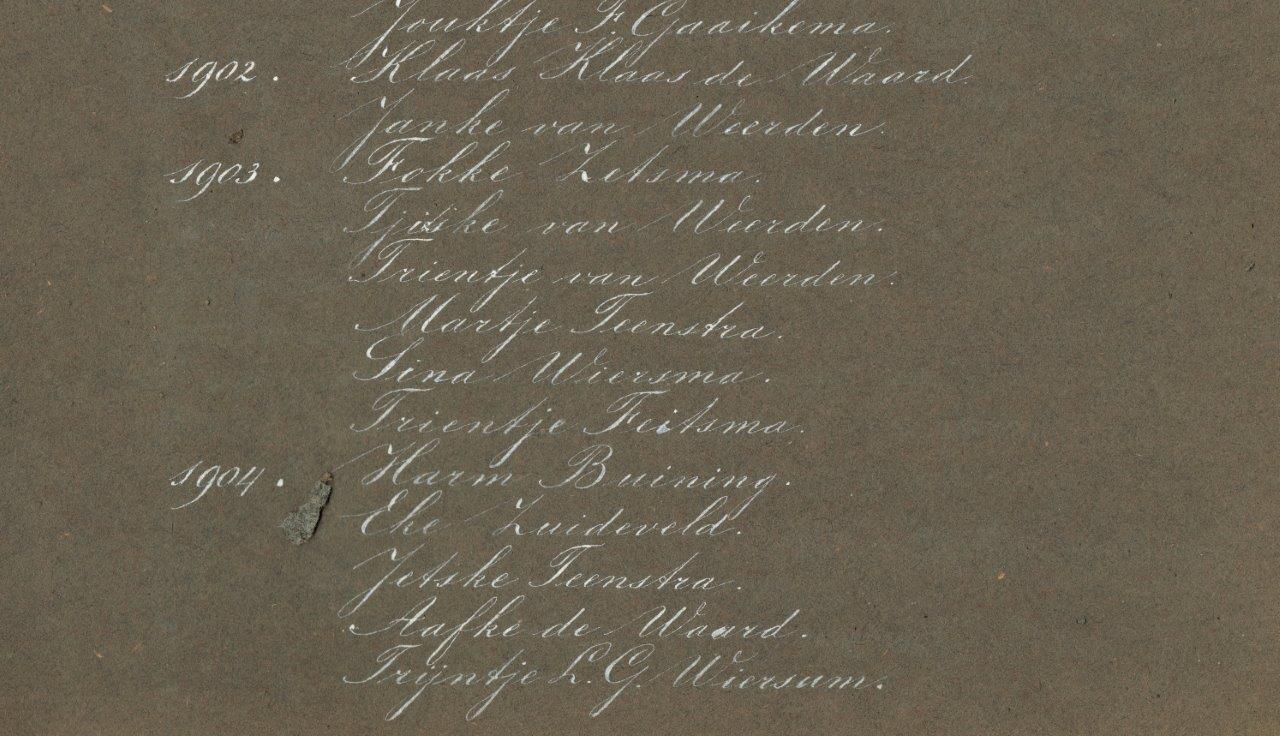 Jouktje F. Gaaikema.
1902. Klaas Klaas de Waard.
Janke van Weerden.
1903. Fokke Zetsma.
Tjitske van Weerden.
Trientje van Weerden.
Martje Teenstra.
Sina Wiersma.
Trientje Feitsma.
1904. Harm Buining.
Eke Zuideveld.
Jetske Teenstra.
Aafke de Waard.
Trijntje L. G. Wiersum.